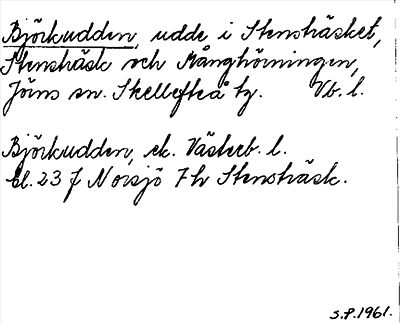 Björkudden, udde i Stensträsket,
Stensträsk och Månghörningen,
Jörns sn. Skellefteå tg. Vb. l.
Björkudden, ek. Västerb. l.
bl. 23 J Norsjö 7 h Stensträsk.
S.P. 1961.